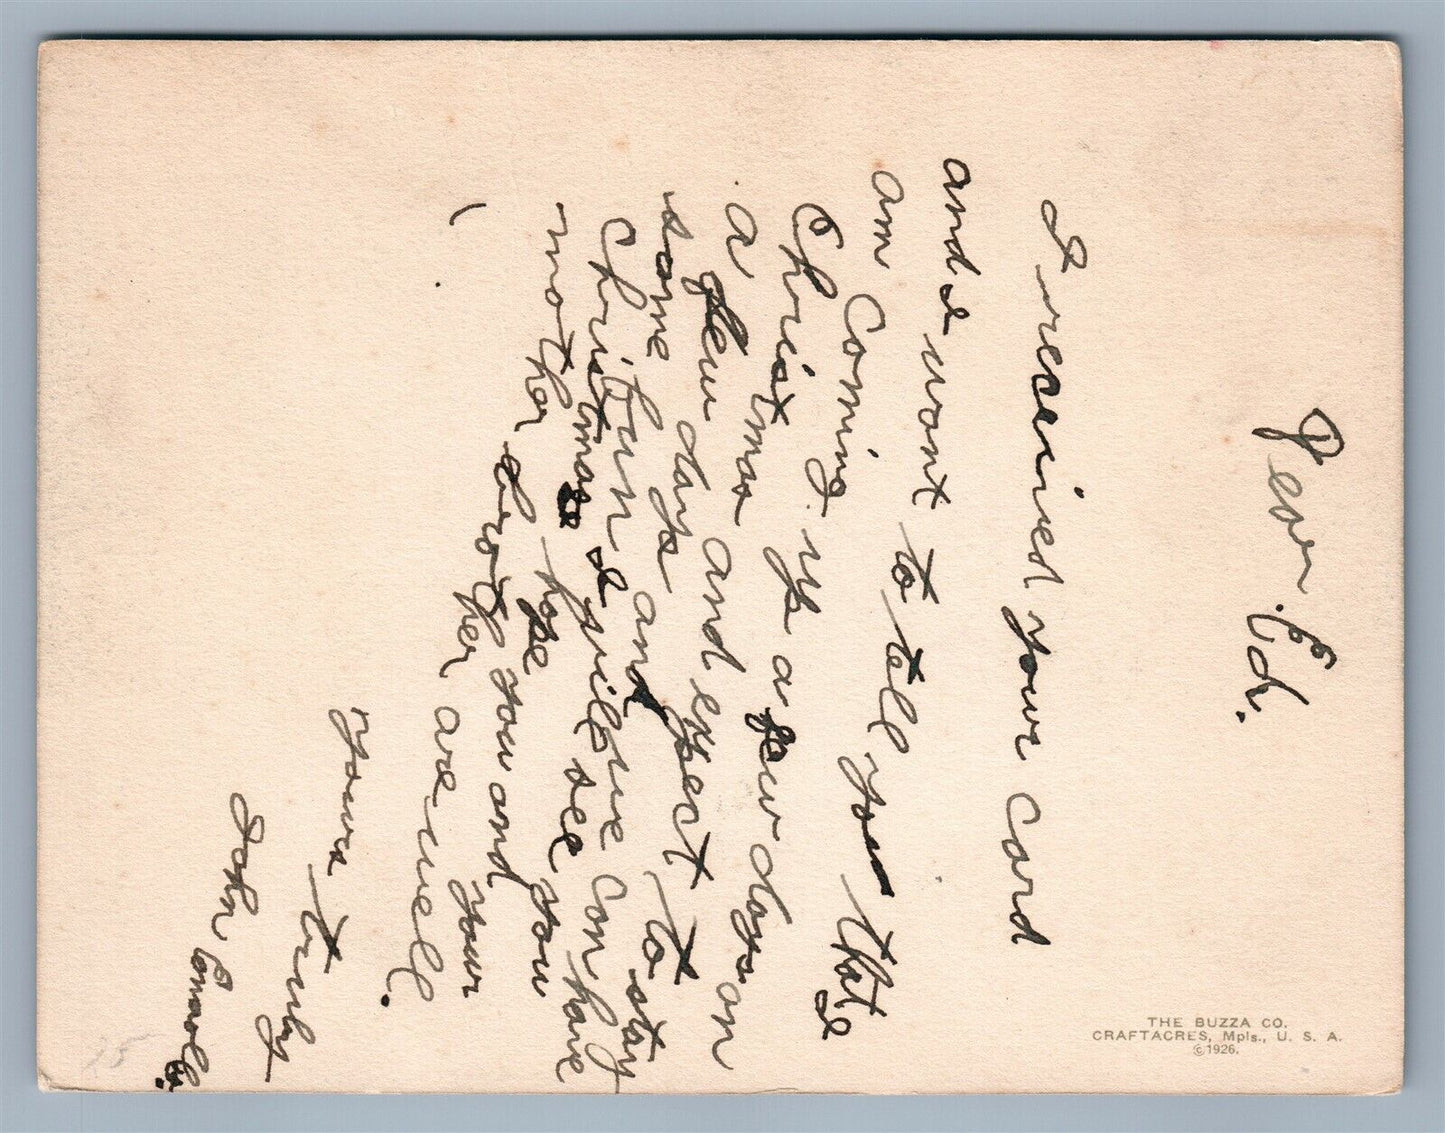 Dear Ed.
I received your card
and I want to tell you that I
am Coming up a few days on
Christmas and expect to stay
a few days and we can have
some fun
Christmas I will see you
mother I hope you and your
brother are well.
Yours truly
John
THE BUZZA CO.
CRAFTACRES, Mpls., U. S. A.
©1926.
25